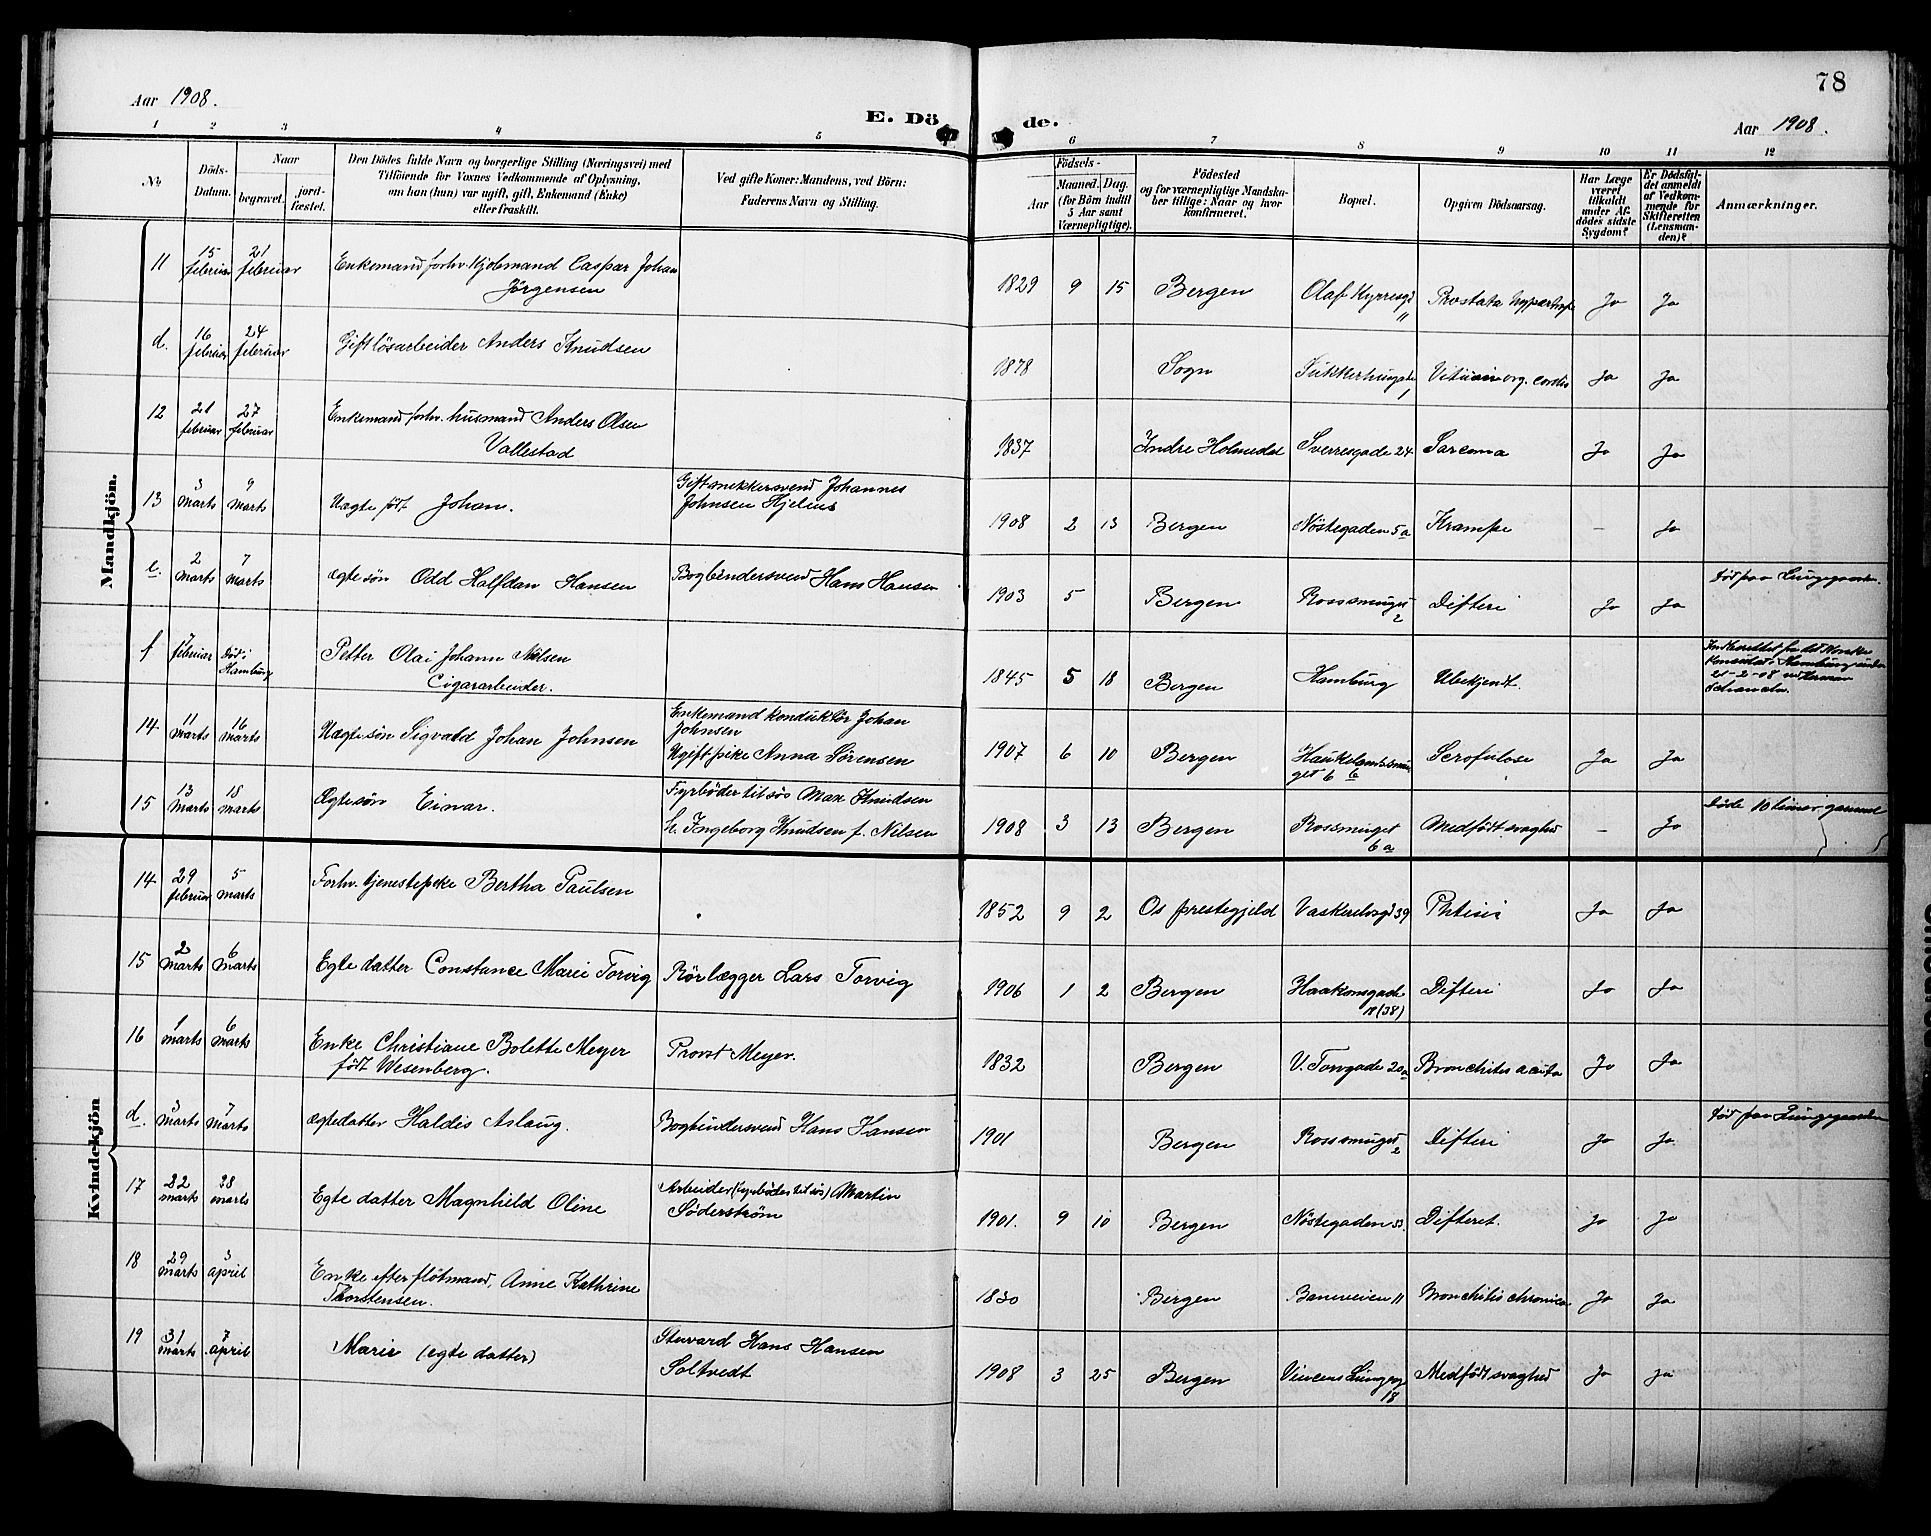 78
Aar 1908.
E. Döde.
Aar 1908.
1 2 3 4 5 6 7 8 9 10 11 12
No
Döds-
Datum.
Naar
begravet.
jord-
fæstet.
Den Dödes fulde Navn og borgerlige Stilling (Næringsvei) med
Tilföiende for Voxnes Vedkommende af Oplysning,
om han (hun) var ugift, gift, Enkemand (Enke)
eller fraskilt.
Ved gifte Koner: Mandens, ved Börn:
Faderens Navn og Stilling.
Födsels-
Aar
Maaned. Dag.
(for Börn indtil
5 Aar samt
Værnepligtige).
Födested
og for værnepligtige Mandska-
ber tillige: Naar og hvor
konfirmeret.
Bopæl.
Opgiven Dödsaarsag.
Har Læge
været
tilkaldt
under Af-
dödes sidste
Sygdom?
Er Dödsfal-
det anmeldt
af Vedkom-
mende for
Skifteretten
(Lensman-
den)?
Anmærkninger.
Mandkjön.
11 15 februar 21 februar Enkemand forhv. Kjöbmand Caspar Johan
Jörgensen
1829 9 15 Bergen Olaf Kyrresgd 11 Prostata hypertrofi Ja Ja
d. 16 februar 24 februar Gift lösarbeider Anders Knudsen
1878 Sogn 1 Vitium org. cordis Ja Ja
12 21 februar 27 februar Enkemand forhv. husmand Anders Olsen
Vallestad
1837 Indre Holmedal Sverresgade 24 Sarcoma Ja Ja
13 3 Marts 9 Marts Uægte födt Johan. Gift snekkersvend Johannes
Johnsen Hjelius
1908 2 13 Bergen Nöstegaden 5a Krampe – Ja
e. 2 Marts 7 Marts ægte sön Odd Halfdan Hansen Bogbindersvend Hans Hansen
1903 5 Bergen Rossmuget 2 Difteri Ja Ja Död paa Lungegaarden.
f 7 februar Död i Hamburg Petter Olai Johann Nilsen
Cigararbeider.
1845 5 18 Bergen Hamburg Ubekjendt. Indberettet fra det Norske
Konsulat i Hamburg under
21-2-08
14 11 Marts 16 Marts Uægte sön Sigvald Johan Johnsen Enkemand konduktör Johan
Johnsen
Ugift pike Anna Sörensen
1907 6 10 Bergen Haukelandsmu-
get 6 b Scrofulose Ja Ja
15 13 Marts 18 Marts Ægte sön Einar. Fyrböder til sös Max Knudsen
h. Ingeborg Knudsen f. Nilsen
1908 3 13 Bergen Rossmuget 6 a Medfödt svaghed – Ja Döde 10 timer gammel
Kvindekjön
14 29 februar 5 marts Forhv. tjenestepike Bertha Paulsen
1852 9 2 Os prestegjeld Vaskerelvsgd 39 Phtisis Ja Ja
15 2 Marts 6 Marts Egte datter Constance Marie Torvig Rörlægger Lars Torvig
1906 1 2 Bergen Haakonsgade (38) Difteri Ja Ja
16 1 marts 6 Marts Enke Christiane Bolette Meyer
födt Wesenberg. Provst Meyer.
1832 Bergen V. Torvgade 20a Bronchitis acuta Ja Ja
d. 3 Marts 7 Marts ægtedatter Haldis Aslaug. Bogbindersvend Hans Hansen
1901 Bergen Rossmuget 2 Difteri Ja Ja. Död paa Lungegaarden
17 22 marts 28 marts Egte datter Magnhild Oline Arbeider (fyrböder til sös) Martin
Söderström
1901. 9 10 Bergen Nöstegaden 53. Difterit. Ja Ja
18 29 marts 3 april Enke efter flötmand, Anne Kathrine
Thorstensen.
1830 Bergen Baneveien 11 Bronchitis chronica Ja Ja
19 31 marts 7 april Marie (egte datter) Stuvard Hans Hansen
Soltvedt
1908 3 25 Bergen Vincens Lungesg 18 Medfödt svaghed Ja Ja